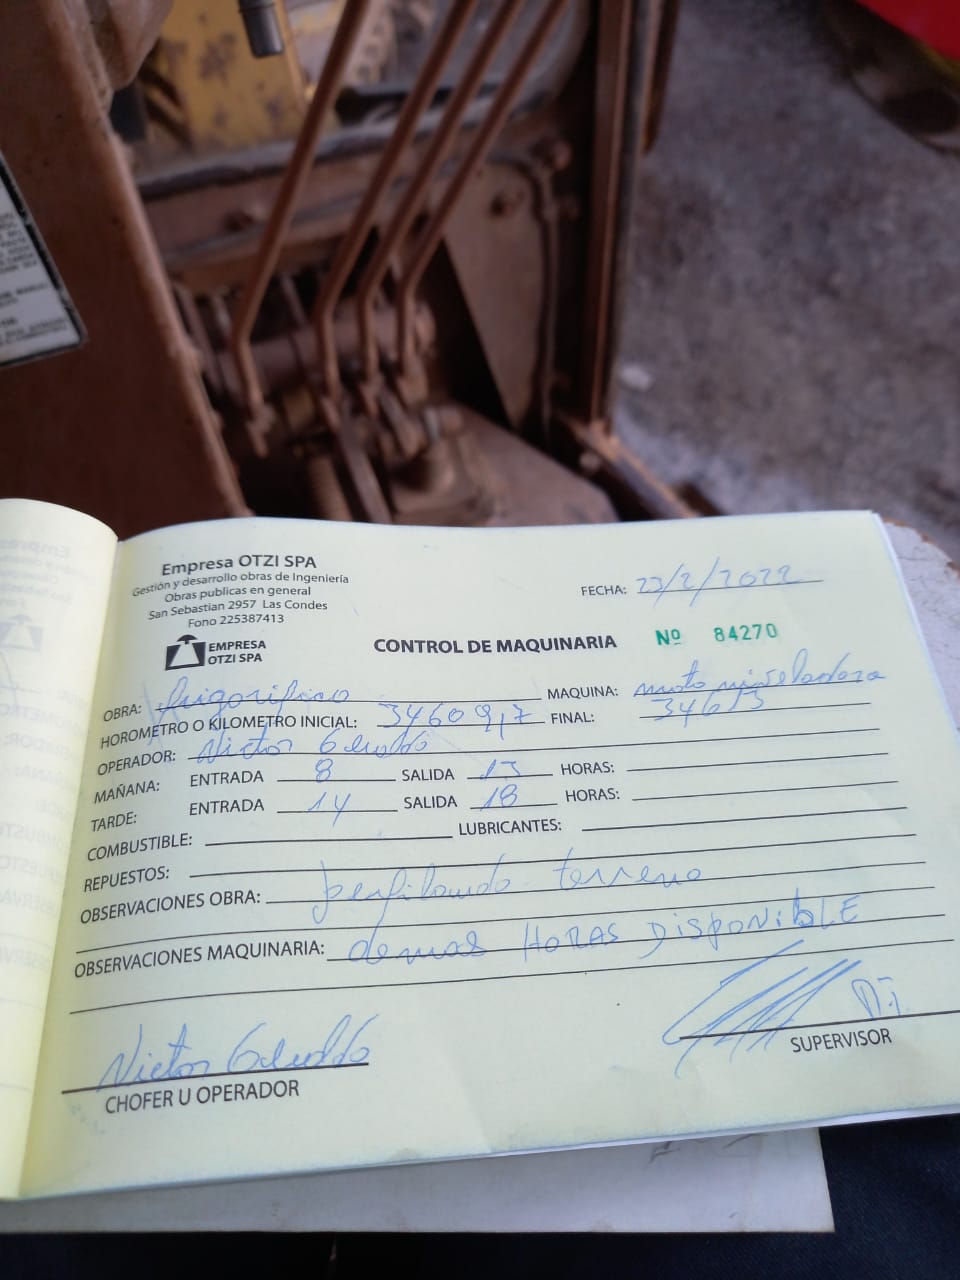 Empresa OTZI SPA
Gestión y desarrollo obras de Ingeniería
Obras publicas en general
San Sebastian 2957 Las Condes
Fono 225387413
EMPRESA
OTZI SPA
FECHA: 23/2/2022
CONTROL DE MAQUINARIA Nº 84270
OBRA: frigorifico MAQUINA: moto niveladora
HOROMETRO O KILOMETRO INICIAL: 34609,7 FINAL: 34613
OPERADOR: Victor
MAÑANA: ENTRADA 8 SALIDA 13 HORAS:
TARDE: ENTRADA 14 SALIDA 18 HORAS:
COMBUSTIBLE: LUBRICANTES:
REPUESTOS:
OBSERVACIONES OBRA: perfilando terreno
OBSERVACIONES MAQUINARIA: demas HORAS DISPONIBLE
Victor
CHOFER U OPERADOR
SUPERVISOR